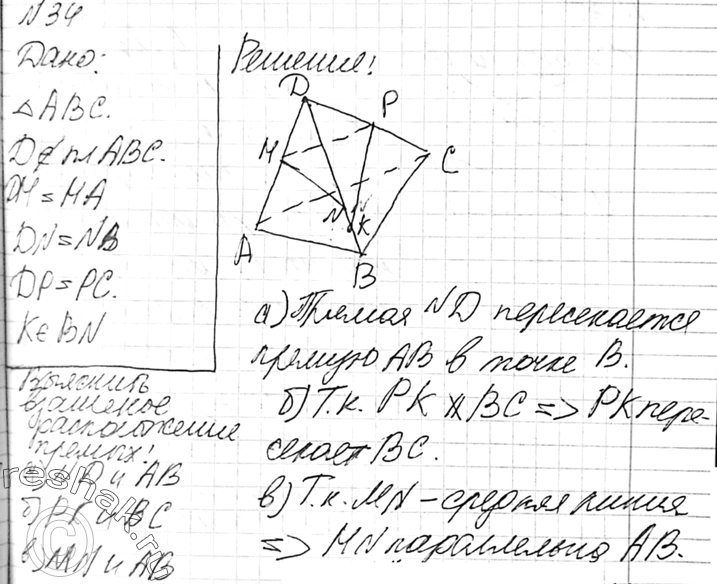 N34
Дано:
△ABC.
D∉ пл ABC.
DM = MA
DN = NB
DP = PC.
K∈BN
Выяснить
взаимное
расположение
прямых:
ND и AB
б) PK и BC
в) MN и AB
Решение:
D
P
M
C
N
K
A
B
а) Прямая ND пересекается
прямую AB в точке B.
б) Т.к. PK ∦ BC => PK пере-
секает BC.
в) Т.к. MN – средняя линия
=> MN параллельна AB.
reshak.ru